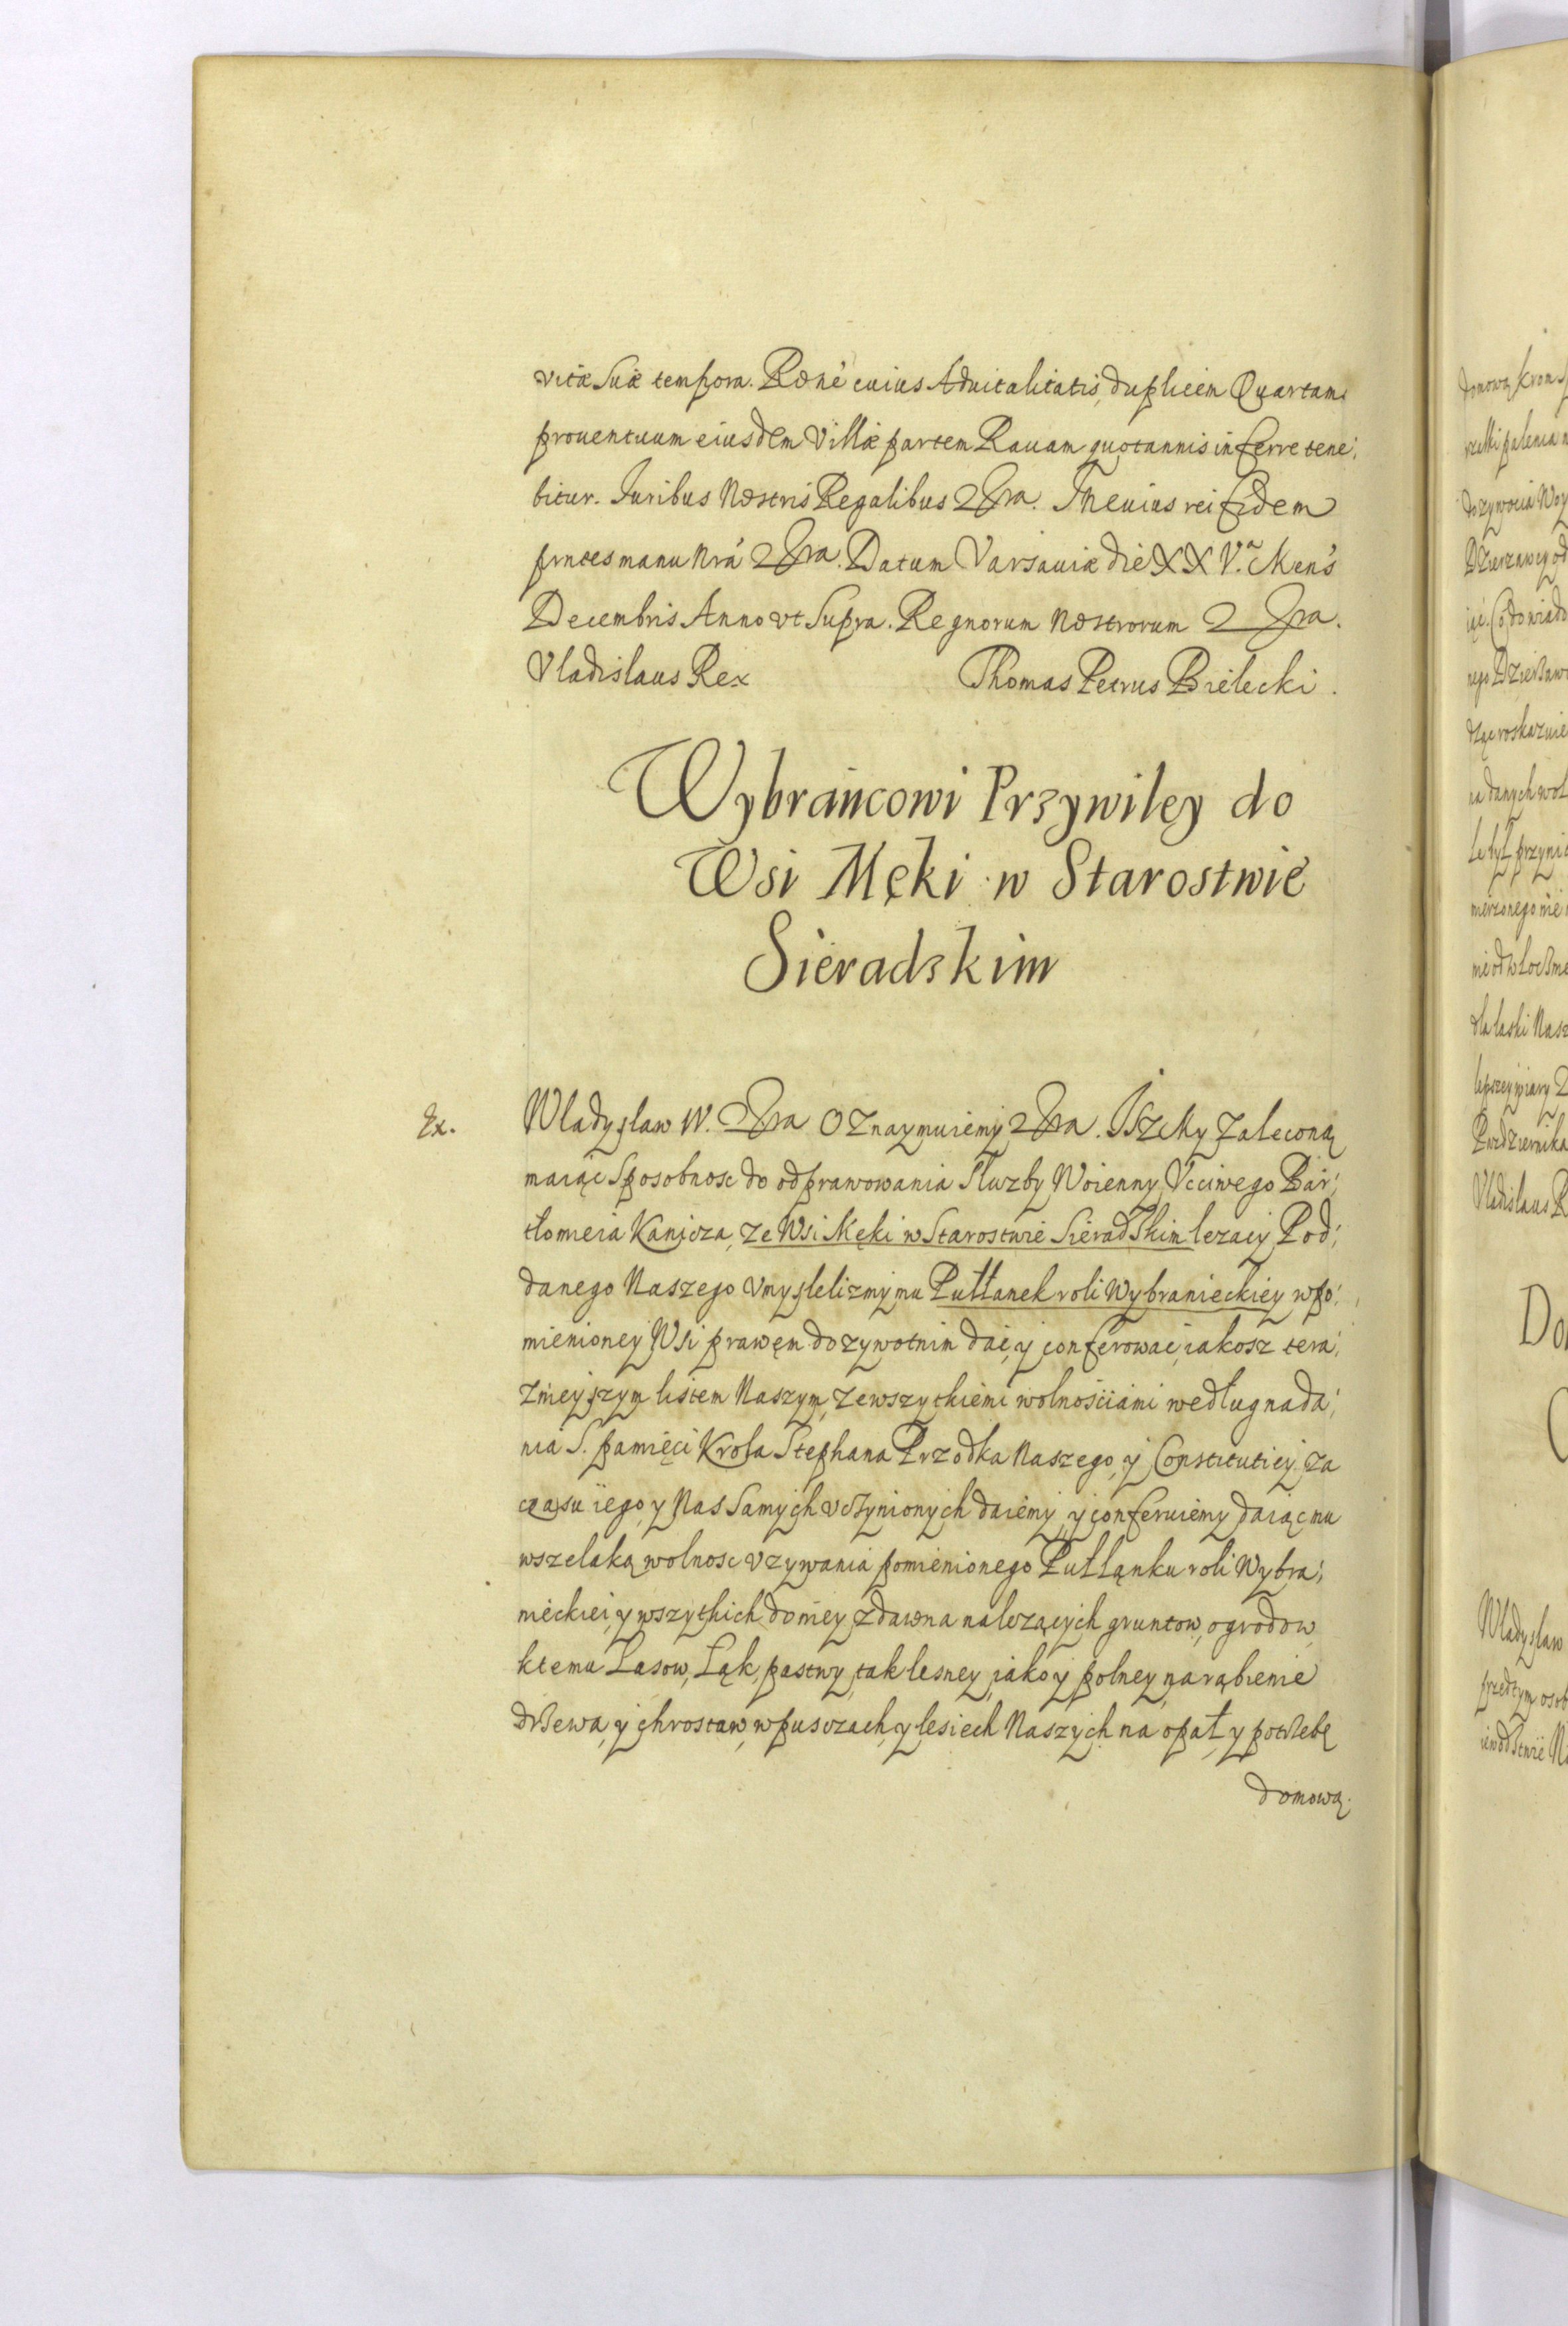 vitæ Suæ tempora. Rõné cuius Aduitalitatis, duplicem Quartam
prouentuum eiusdem Villæ partem Rauam quotannis inferre tene:
bitur. Iuribus Nostris Regalibus &tra. In cuius rei fidem
prntes manu nrá &tra. Datum Varsauiæ die XXV.a Mens
Decembris Anno vt Supra. Regnorum Nostrorum &tra.
Vladislaus Rex Thomas Petrus Bielecki.
Wybrańcowi Przywiley do
Wsi Męki w Starostwie
Sieradzkim
Ex. Władysław IV. &tra Oznaymuiemy &tra. Isz My zaleconą
maiąc sposobnosc do odprawowania Służby Woienny Vcciwego Bár:
tłomieia Kanicza, ze Wsi Męki w Starostwie Sieradskim lezacy Pod:
danego Naszego vmyslelizmy mu Pułłanek roli Wybranieckiey w po:
mienioney Wsi prawem dozywotnim dać, y conferowac, iakosz tera:
znieyszym listem Naszym, ze wszytkiemi wolnościami według nada:
nia S. pamięci Krola Stephana Przodka Naszego, y Constitutiey za
czasu iego, y Nas Samych vczynionych daiemy, y conferuiemy daiąc mu
wszelaką wolnosc vzywania pomienionego Pułłanku roli Wybra:
nieckiei, y wszytkich do niey zdawna nalezących gruntow, ogrodow,
ktemu Lasow, Łąk, pastwy, tak lesney, iako y polney, na rąbienie
drzewa, y chrostaw, w pusczach, y lesiech Naszych na opał, y potrzebę
domową.